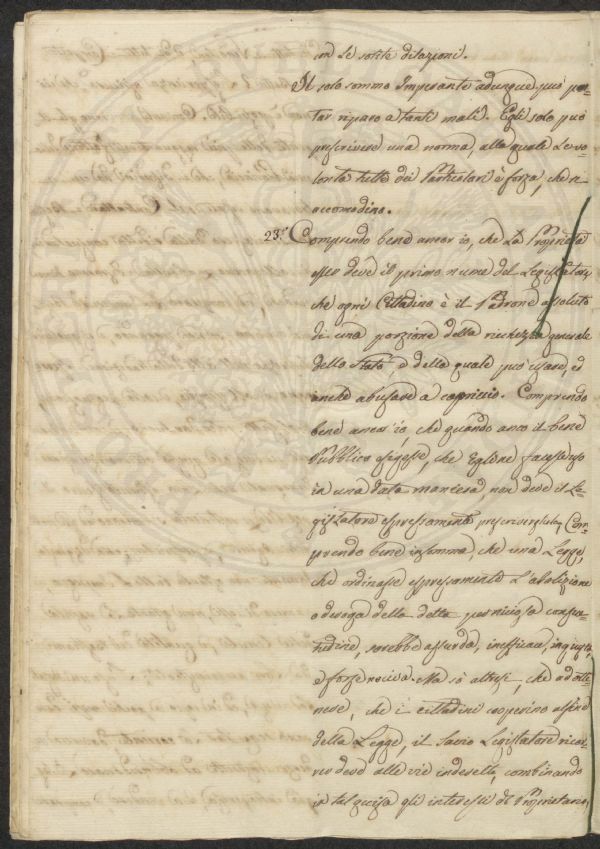 con le solite dilazioni.
Il solo sommo Imperante adunque può por-
tar riparo a tanti mali. Egli solo può
prescrivere una norma, alla quale le vo-
lontà tutte dei Particolari è forza, che si
accomodino.
23.° Comprendo bene ancor io, che la Proprietà
esser deve il primo nume del Legislatore,
che ogni Cittadino è il Padrone assoluto
di una porzione della ricchezza generale
dello Stato, e della quale può usare, ed
anche abusare a capriccio. Comprendo
bene ancor io, che quando anco il bene
Pubblico esigesse, che Egli ne facesse uso
in una data maniera, non deve il Le-
gislatore espressamente prescrivergliela, Com-
prendo bene insomma, che una Legge,
che ordinasse espressamente l'abolizione
o deroga della detta perniciosa consue-
tudine, sarebbe assurda, inefficace, ingiusta,
e forse nociva. Ma sò altresì, che ad otte-
nere, che i cittadini cooperino al fine
della Legge, il Savio Legislatore ricor-
rer deve alle vie indirette, combinando
in tal guisa gli interessi de' Proprietarj,